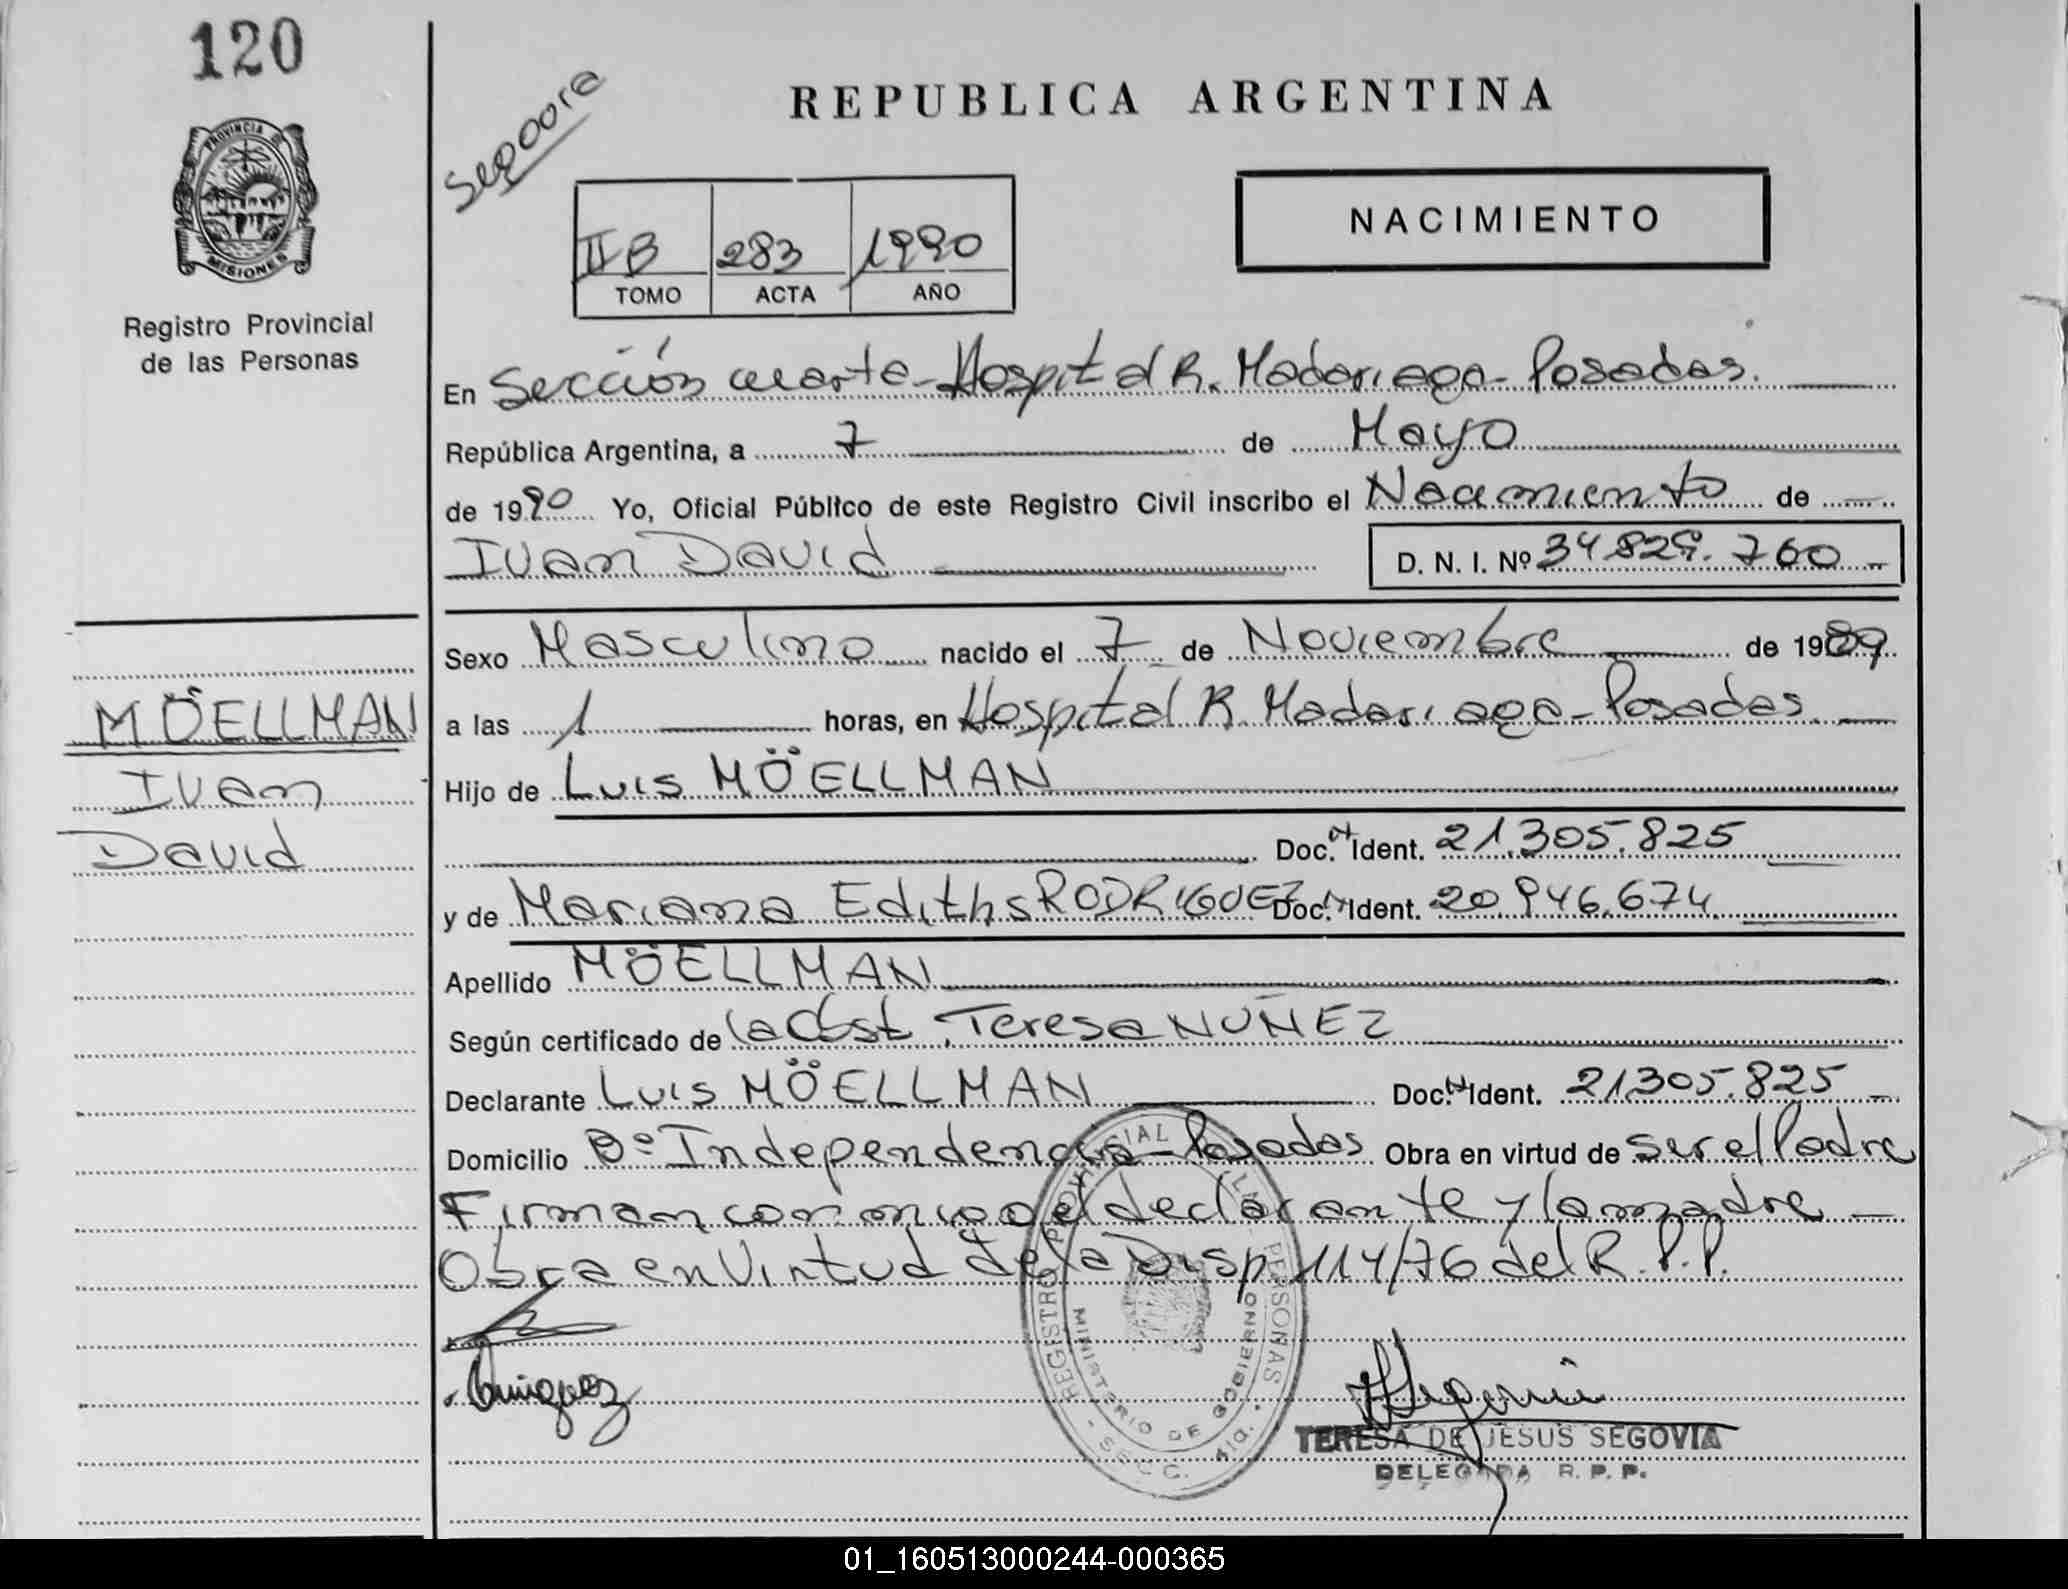 120
PROVINCIA DE
MISIONES
Registro Provincial
de las Personas
REPUBLICA ARGENTINA
NACIMIENTO
II B 283 1990
TOMO ACTA AÑO
En Sección cuarta - Hospital R. Madariaga - Posadas.
República Argentina, a 7 de Mayo
de 1990 Yo, Oficial Público de este Registro Civil inscribo el Nacimiento de
Ivan David D. N. I. Nº 34.829.760
Sexo Masculino nacido el 7 de Noviembre de 1989
a las 1 horas, en Hospital R. Madariaga - Posadas.
Hijo de Luis MÖELLMAN
Doc. N Ident. 21.305.825
y de Mariana Ediths RODRIGUEZ Doc. N Ident. 20.946.674
Apellido MÖELLMAN
Según certificado de la Obst. Teresa NUÑEZ
Declarante Luis MÖELLMAN Doc. N Ident. 21.305.825
Domicilio Bº Independencia - Posadas Obra en virtud de ser el Padre
Firman conmigo el declarante y la madre
Obra en Virtud de la Disp. 114/76 del R.P.P.
MÖELLMAN
Ivan
David
REGISTRO PROVINCIAL PERSONAS
MINISTERIO DE GOBIERNO
SECC. 4ta.
TERESA DE JESUS SEGOVIA
DELEGADA R. P. P.
01_160513000244-000365